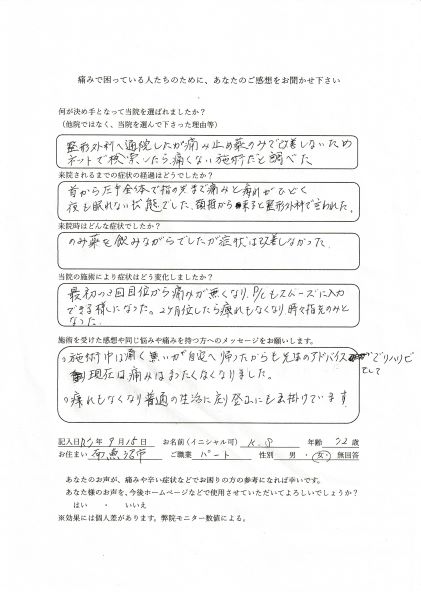 痛みで困っている人たちのために、あなたのご感想をお聞かせ下さい
何が決め手となって当院を選ばれましたか？
（他院ではなく、当院を選んで下さった理由等）
整形外科へ通院したが痛み止め薬のみで改善しないため
ネットで検索したら痛くない施術だと調べた。
来院されるまでの症状の経過はどうでしたか？
首から左手全体で指の先まで痛みと痺れがひどく
夜も眠れない状態でした。頚椎から来ると整形外科で言われた。
来院時はどんな症状でしたか？
のみ薬を飲みながらでしたが症状は改善しなかった.
当院の施術により症状はどう変化しましたか？
最初 回目位から痛みが無くなり、P/Cもスムーズに入力
できる様になった。2ヶ月位したら痺れもなくなり時々指先のみと
なった.
施術を受けた感想や同じ悩みや痛みを持つ方へのメッセージをお願いします。
施術中は痛く無いが自宅へ帰ってからも先生のアドバイスでリハビリ
をして
現在は痛みはまったくなくなりました。
痺れもなくなり普通の生活に戻り登山にも出掛けています.
記入日 R3年 9月15日 お名前（イニシャル可） K.S 年齢 72歳
お住まい 南魚沼市 ご職業 パート 性別 男・女・無回答
あなたのお声が、痛みや辛い症状などでお困りの方の参考になれば幸いです。
あなた様のお声を、今後ホームページなどで使用させていただいてよろしいでしょうか？
はい ・ いいえ
※効果には個人差があります。弊院モニター数値による。